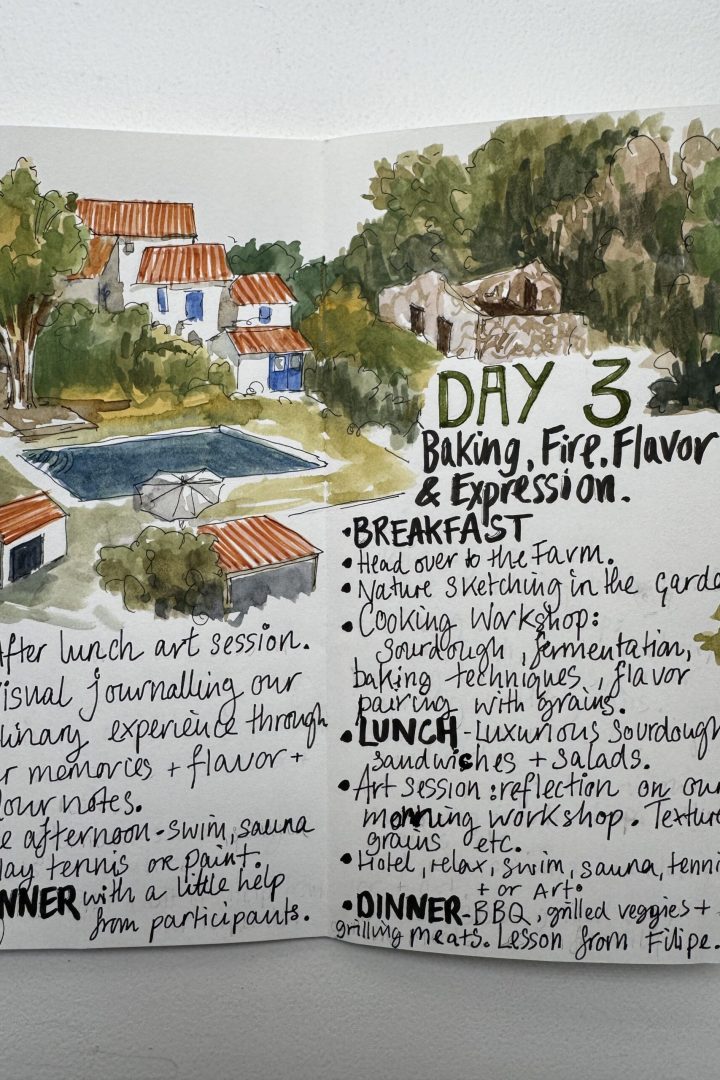 After lunch art session.
visual journalling our
linary experience through
r memories + flavor +
lour notes.
e afternoon - swim, sauna
lay tennis or paint.
NNER with a little help
from participants.
DAY 3
Baking, Fire, Flavor
& Expression.
• BREAKFAST
• Head over to the Farm.
• Nature sketching in the garde
• Cooking Workshop:
sourdough, fermentation,
baking techniques, flavor
pairing with grains.
• LUNCH - Luxurious sourdough
sandwiches + salads.
• Art session: reflection on our
morning workshop. Texture
grains etc.
• Hotel, relax, swim, sauna, tenni
+ or Art.
• DINNER - BBQ, grilled veggies +
grilling meats. Lesson from Filipe.